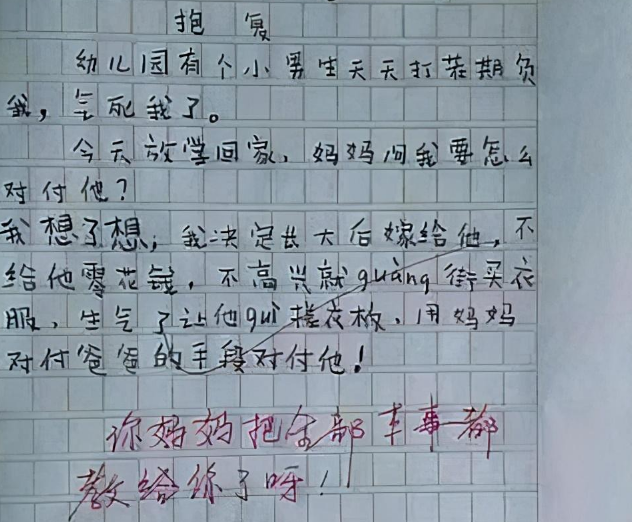 抱复
幼儿园有个小男生天天打茬期负
我，气死我了。
今天放学回家，妈妈问我要怎么
对付他？
我想了想，我决定长大后嫁给他，不
给他零花钱，不高兴就guàng街买衣
服，生气了让他guì搓衣板，用妈妈
对付爸爸的手段对付他！
你妈妈把全部本事都
教给你了呀！